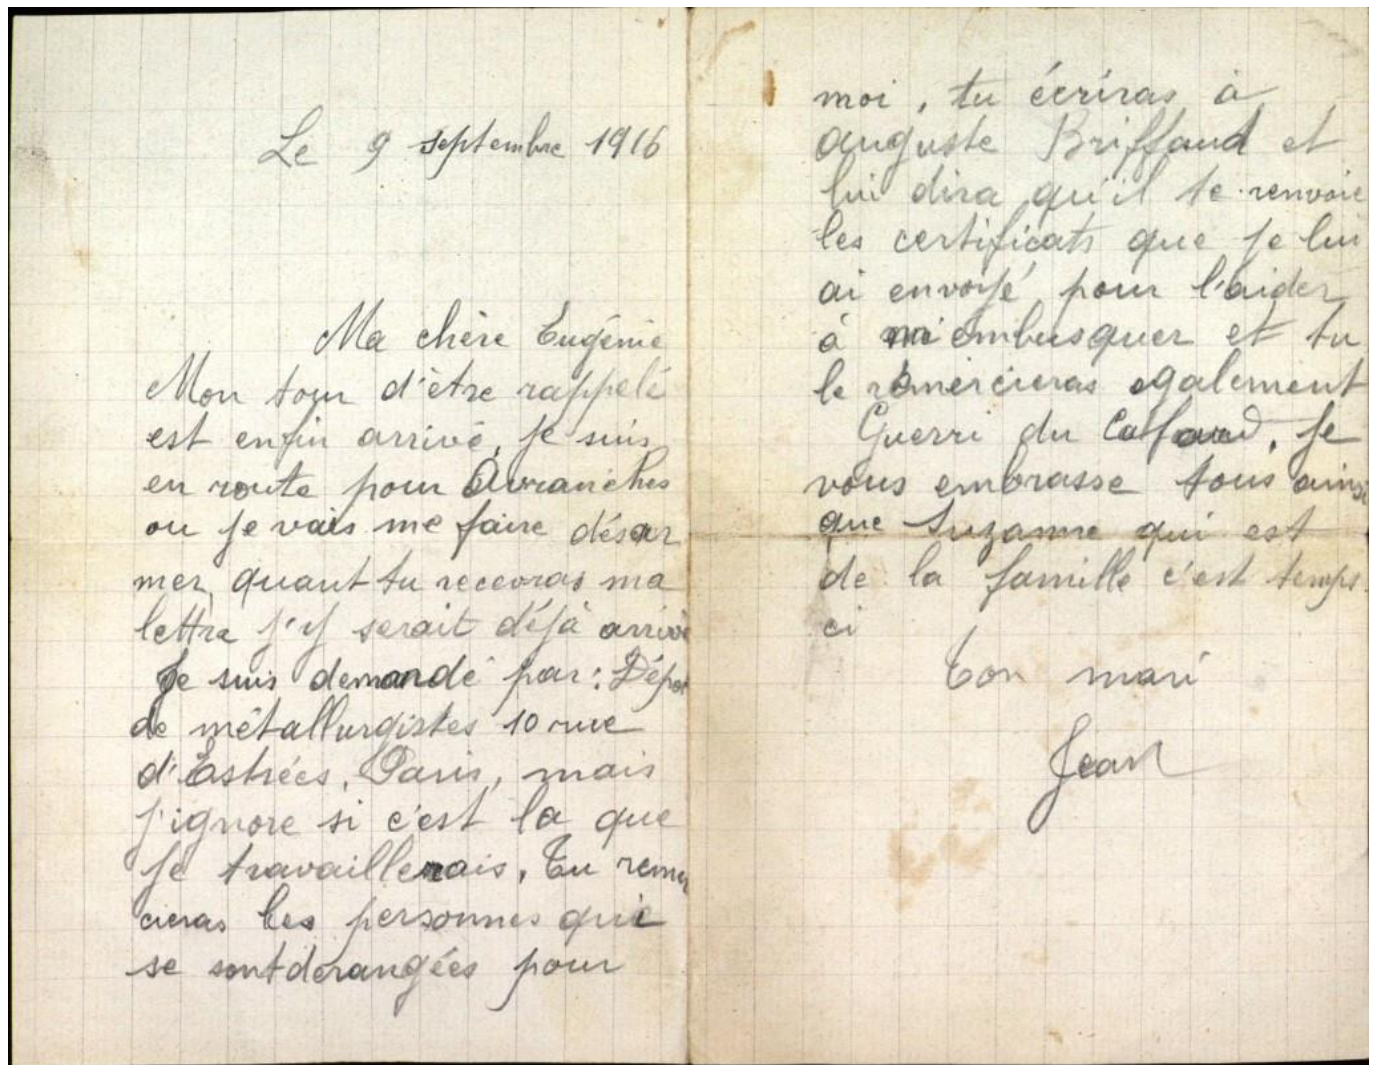 Le 9 septembre 1916
Ma chère Eugénie
Mon tour d'être rappelé
est enfin arrivé, je suis
en route pour Avranches
ou je vais me faire désar
mer, quant tu recevras ma
lettre j'y serait déjà arrivé
Je suis demandé par : Dépot
de métallurgistes 10 rue
d'Estrées, Paris, mais
j'ignore si c'est la que
je travaillerais. Tu remer
cieras les personnes qui
se sont derangées pour
moi, tu écriras à
Auguste Briffaud et
lui dira qu'il te renvoie
les certificats que je lui
ai envoyé pour l'aider
à m'embusquer et tu
le remercieras egalement
Guerri du Cafard. Je
vous embrasse tous ainsi
que Suzanne qui est
de la famille c'est temps
ci
Ton mari
Jean